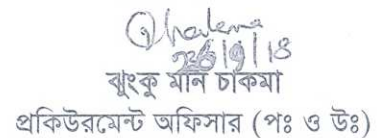 ২৬/৯/১৮
ঝুংকু মনি চাকমা
প্রকিউরমেন্ট অফিসার (পঃ ও উঃ)